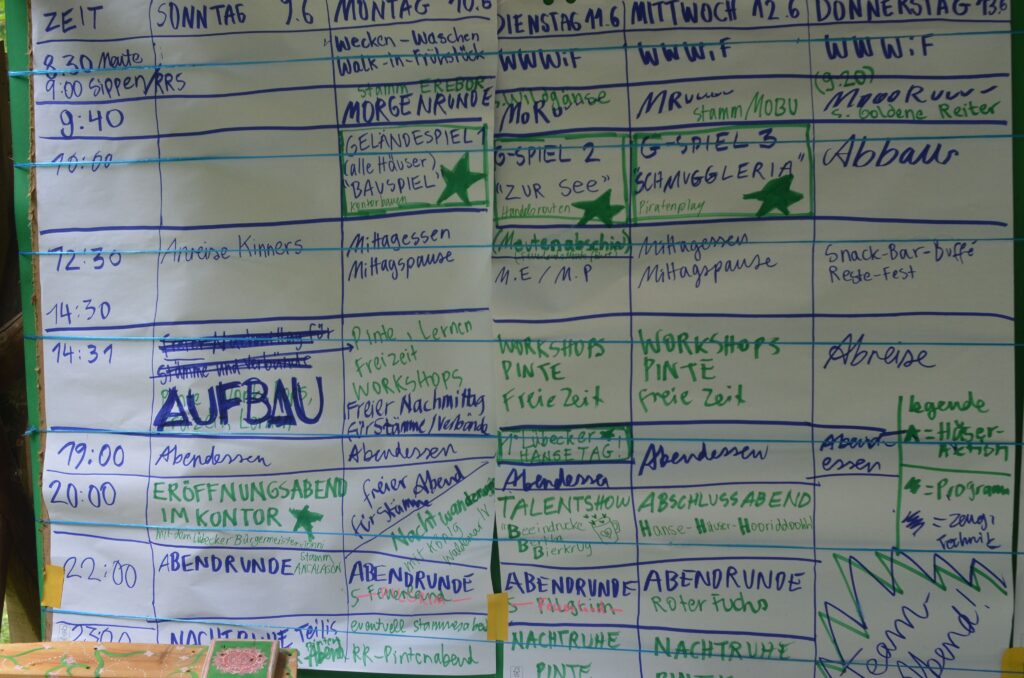 ZEIT
SONNTAG 9.6
MONTAG 10.6
DIENSTAG 11.6
MITTWOCH 12.6
DONNERSTAG 13.6
8.30 Meute
9:00 Sippen/RRS
Wecken-Waschen
Walk-in-Frühstück
WWWiF
WWWiF
WWWiF
(9:20)
9:40
Stamm EREBOR
MORGENRUNDE
S. Wildgänse
MoRu
MRu
Stamm/MOBU
S. Goldene Reiter
10:00
GELÄNDESPIEL 1
(alle Häuser)
"BAUSPIEL"
Kontorbauen
G-SPIEL 2
"ZUR SEE"
Handelsrouten
G-SPIEL 3
"SCHMUGGLERIA"
Piratenplay
Abbau
12:30
Anreise Kinners
Mittagessen
Mittagspause
(Meutenabschin)
M.E / M.P
Mittagessen
Mittagspause
Snack-Bar-Buffé
Reste-Fest
14:30
14:31
Freier Nachmittag für
Stämme und Verbände
AUFBAU
Pinte, Lernen
Freizeit
WORKSHOPS
Freier Nachmittag
für Stämme/Verbände
WORKSHOPS
PINTE
Freie Zeit
WORKSHOPS
PINTE
Freie Zeit
Abreise
Legende
= Häuser-
Aktion
= Programm
= Zeug,
Technik
19:00
Abendessen
Abendessen
Lübecker
HANSETAG
Abendessen
Abendessen
Abend-
essen
20:00
ERÖFFNUNGSABEND
IM KONTOR
mit dem Lübecker Bürgermeister
freier Abend
für Stämme
Nachtwanderung
mit König
Waldemar IV
TALENTSHOW
"Beeindrucke
Britta
Bierkrug
ABSCHLUSSABEND
Hanse-Häuser-
22:00
ABENDRUNDE
Stamm
ANCALAGON
ABENDRUNDE
S. Feuerland
ABENDRUNDE
S. Pilgrim
ABENDRUNDE
Roter Fuchs
Team-
Abend!
23:00
NACHTRUHE
eventuell Stammesabend
RR-Pintenabend
NACHTRUHE
PINTE
NACHTRUHE